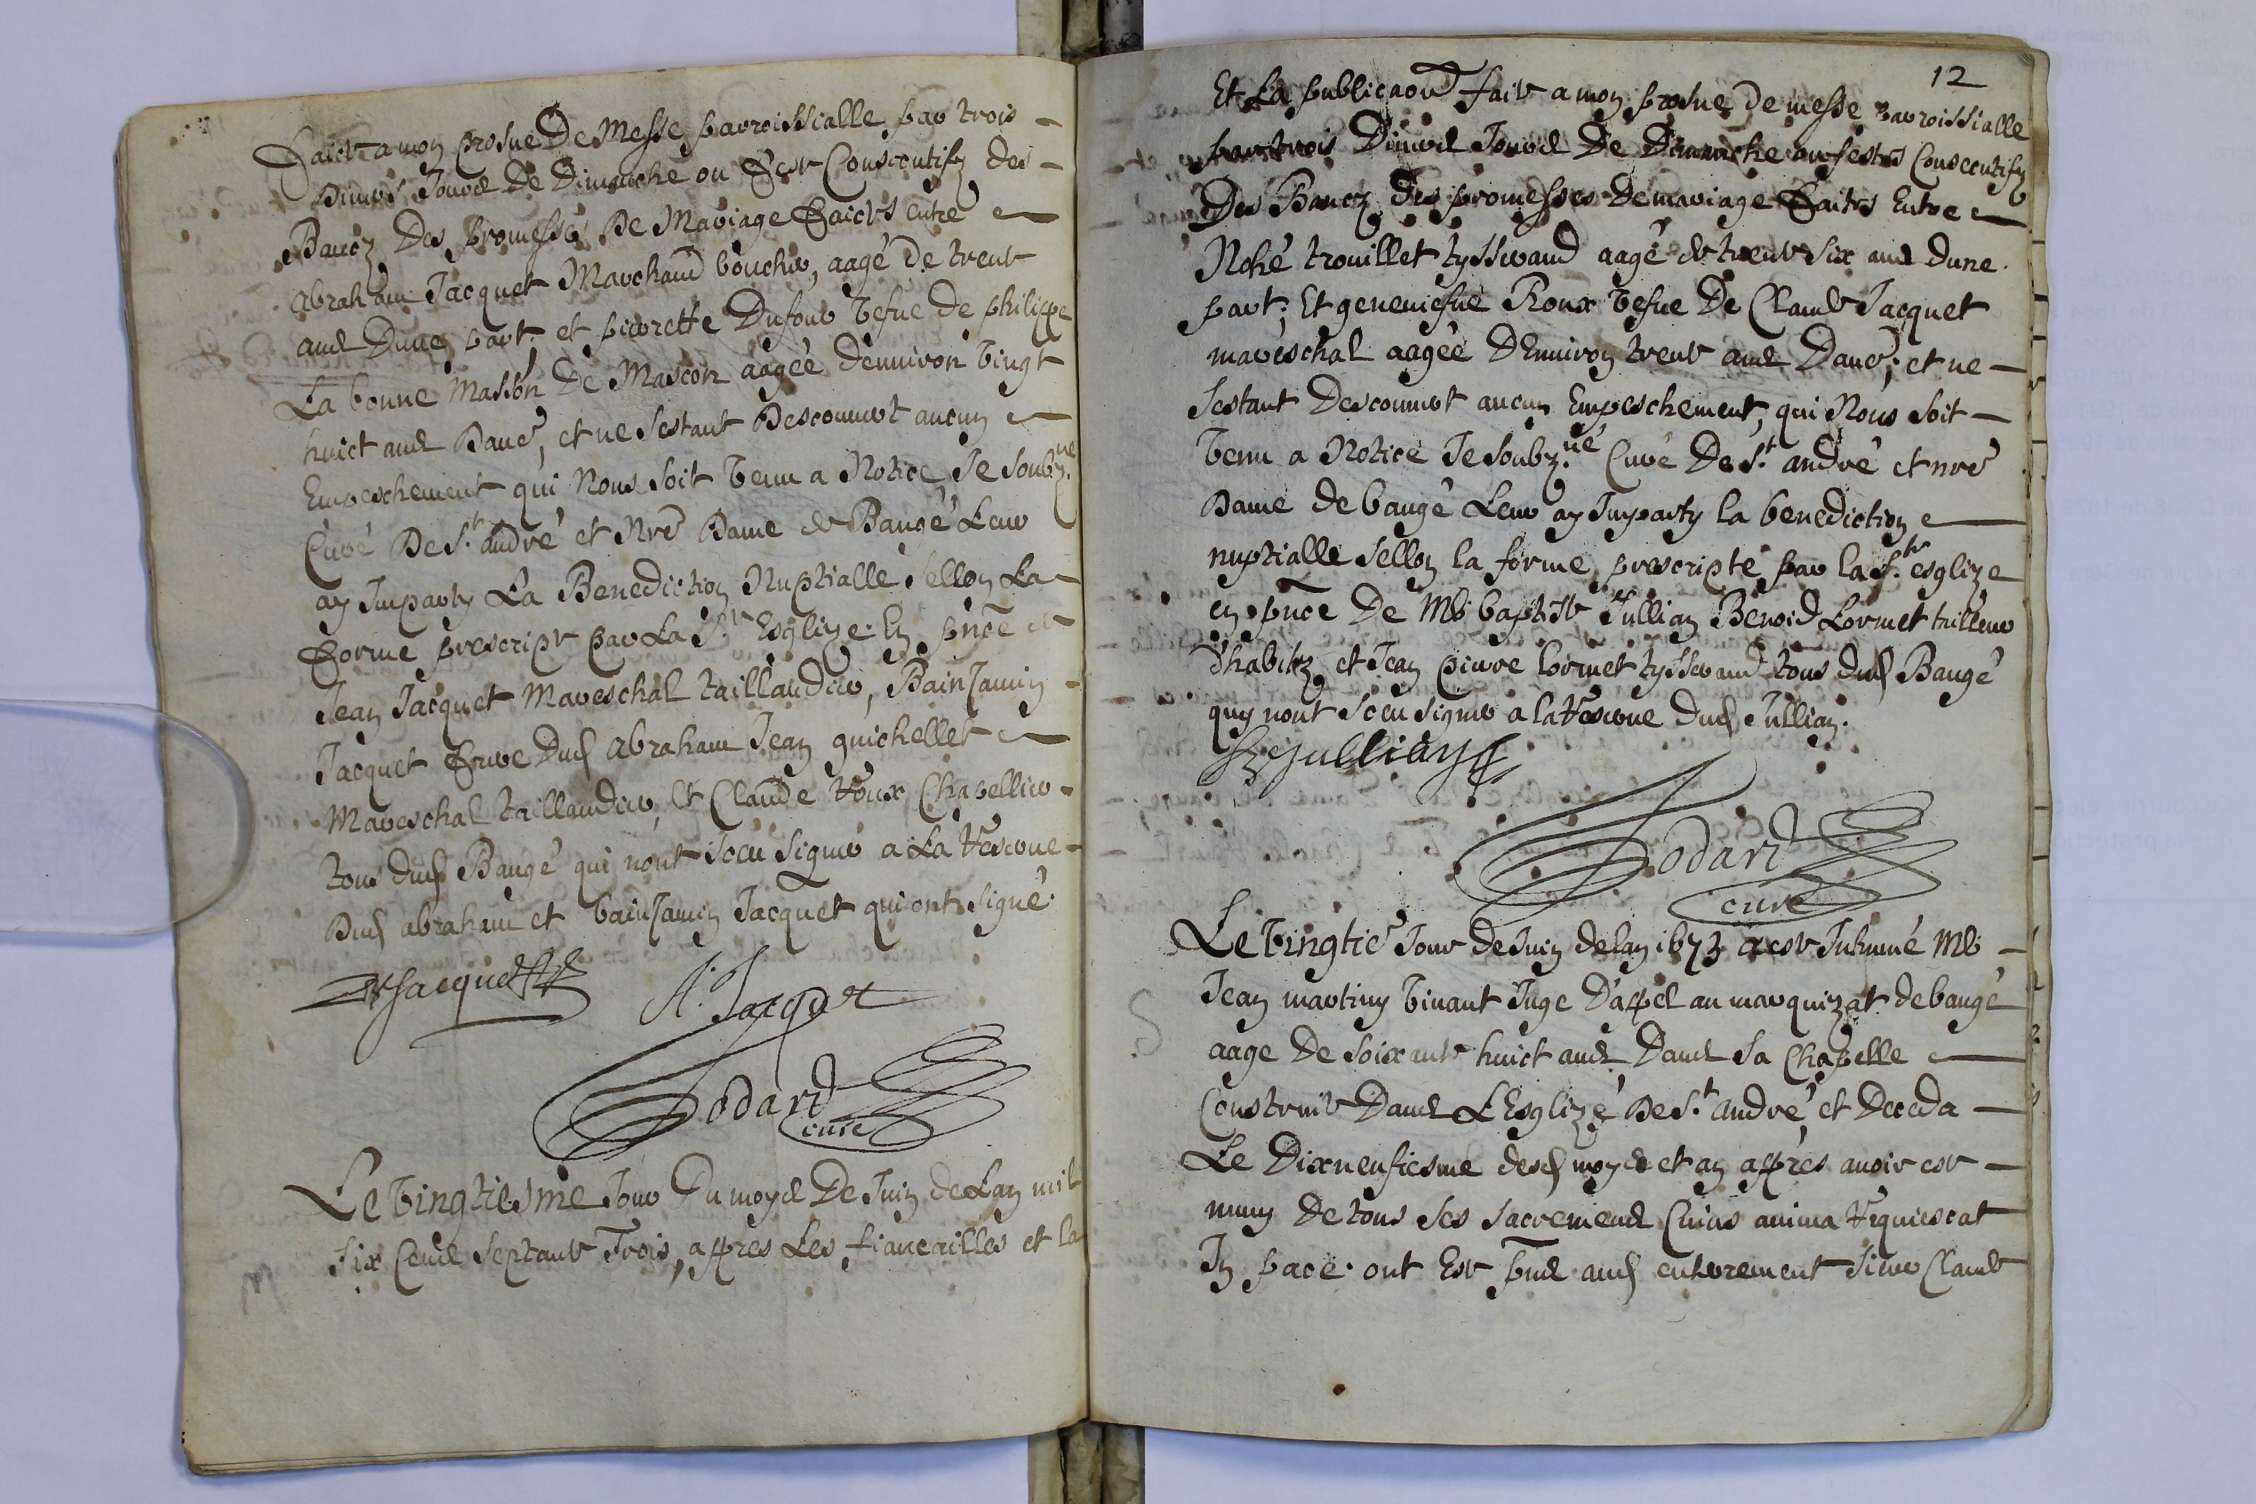 Faicte a mon prosne De Messe parroissialle par trois
Divers Jours De Dimanche ou Feste Consecutifz des
Bancz Des promesses De Mariage Faictes entre
abraham Jacquet Marchand boucher, aagé De trente
ans Dune part. et pierrette Dufour vefue de philippe
La bonne Masson De Mascon aagée denuiron vingt
huict ans Daue, et ne sestant Descouuert aucun
Empeschement qui Nous soit venu a Notice Je soubz.né
Curé De St. andré et Nre Dame de Baugé Leur
ay Imparty La Benediction Nuptialle sellon La
Forme prescripte par La Ste Esglize. En pnce de
Jean Jacquet Mareschal taillandier, Bainjamin
Jacquet Frere dud abraham Jean guichellet
Mareschal taillandier, et Claude Roux Chapellier
tous dud Baugé qui nont sceu signer a La Reserue
Dud abraham et bainjamin Jacquet qui ont signé.
B Jacquet
A. Jacquet
Godard
curé
Le vingtiesme Jour Du moys De Juin de Lan mil
six Cens septante Trois, appres Les fiancailles et la
12
Et La publicaon faite a mon prosne de messe parroissialle
par trois Diuers Jours De Dimanche ou festes Consecutifz
Des Bancz Des promesses De mariage Faites Entre
Nohé trouillet tysserand aagé de trente six ans dune
part; Et geneuiefue Roux vefue De Claude Jacquet
mareschal aagée DEnuiron trente ans Daue; et ne
sestant Descouuert aucun Empeschement, qui Nous soit
venu a Notice Je soubz.né Curé De St. andré et nre
Dame de baugé Leur ay Imparty la benediction
nuptialle sellon la forme prescripte par la Ste esglize
en pnce De Me baptiste Jullian Benoid Lormet tailleur
dhabitz et Jean pierre lormet tysserand tous dud Baugé
quy nont sceu signer a la Reserue dud Jullian.
B Jullian
Godard
curé
Le vingtie Jour de Juin de lan 1673 a este Inhumé Me
Jean martiny viuant Juge D'appel au marquizat de baugé
aage De soixante huict ans Dans sa Chapelle
Construite Dans LEsglize De St. andré, et Deceda
Le Dixneufiesme desd moys et an appres auoir este
muny De tous ses sacremens Cuius anima Requiescat
In pace. ont Este pns aud enterrement sieur Claude